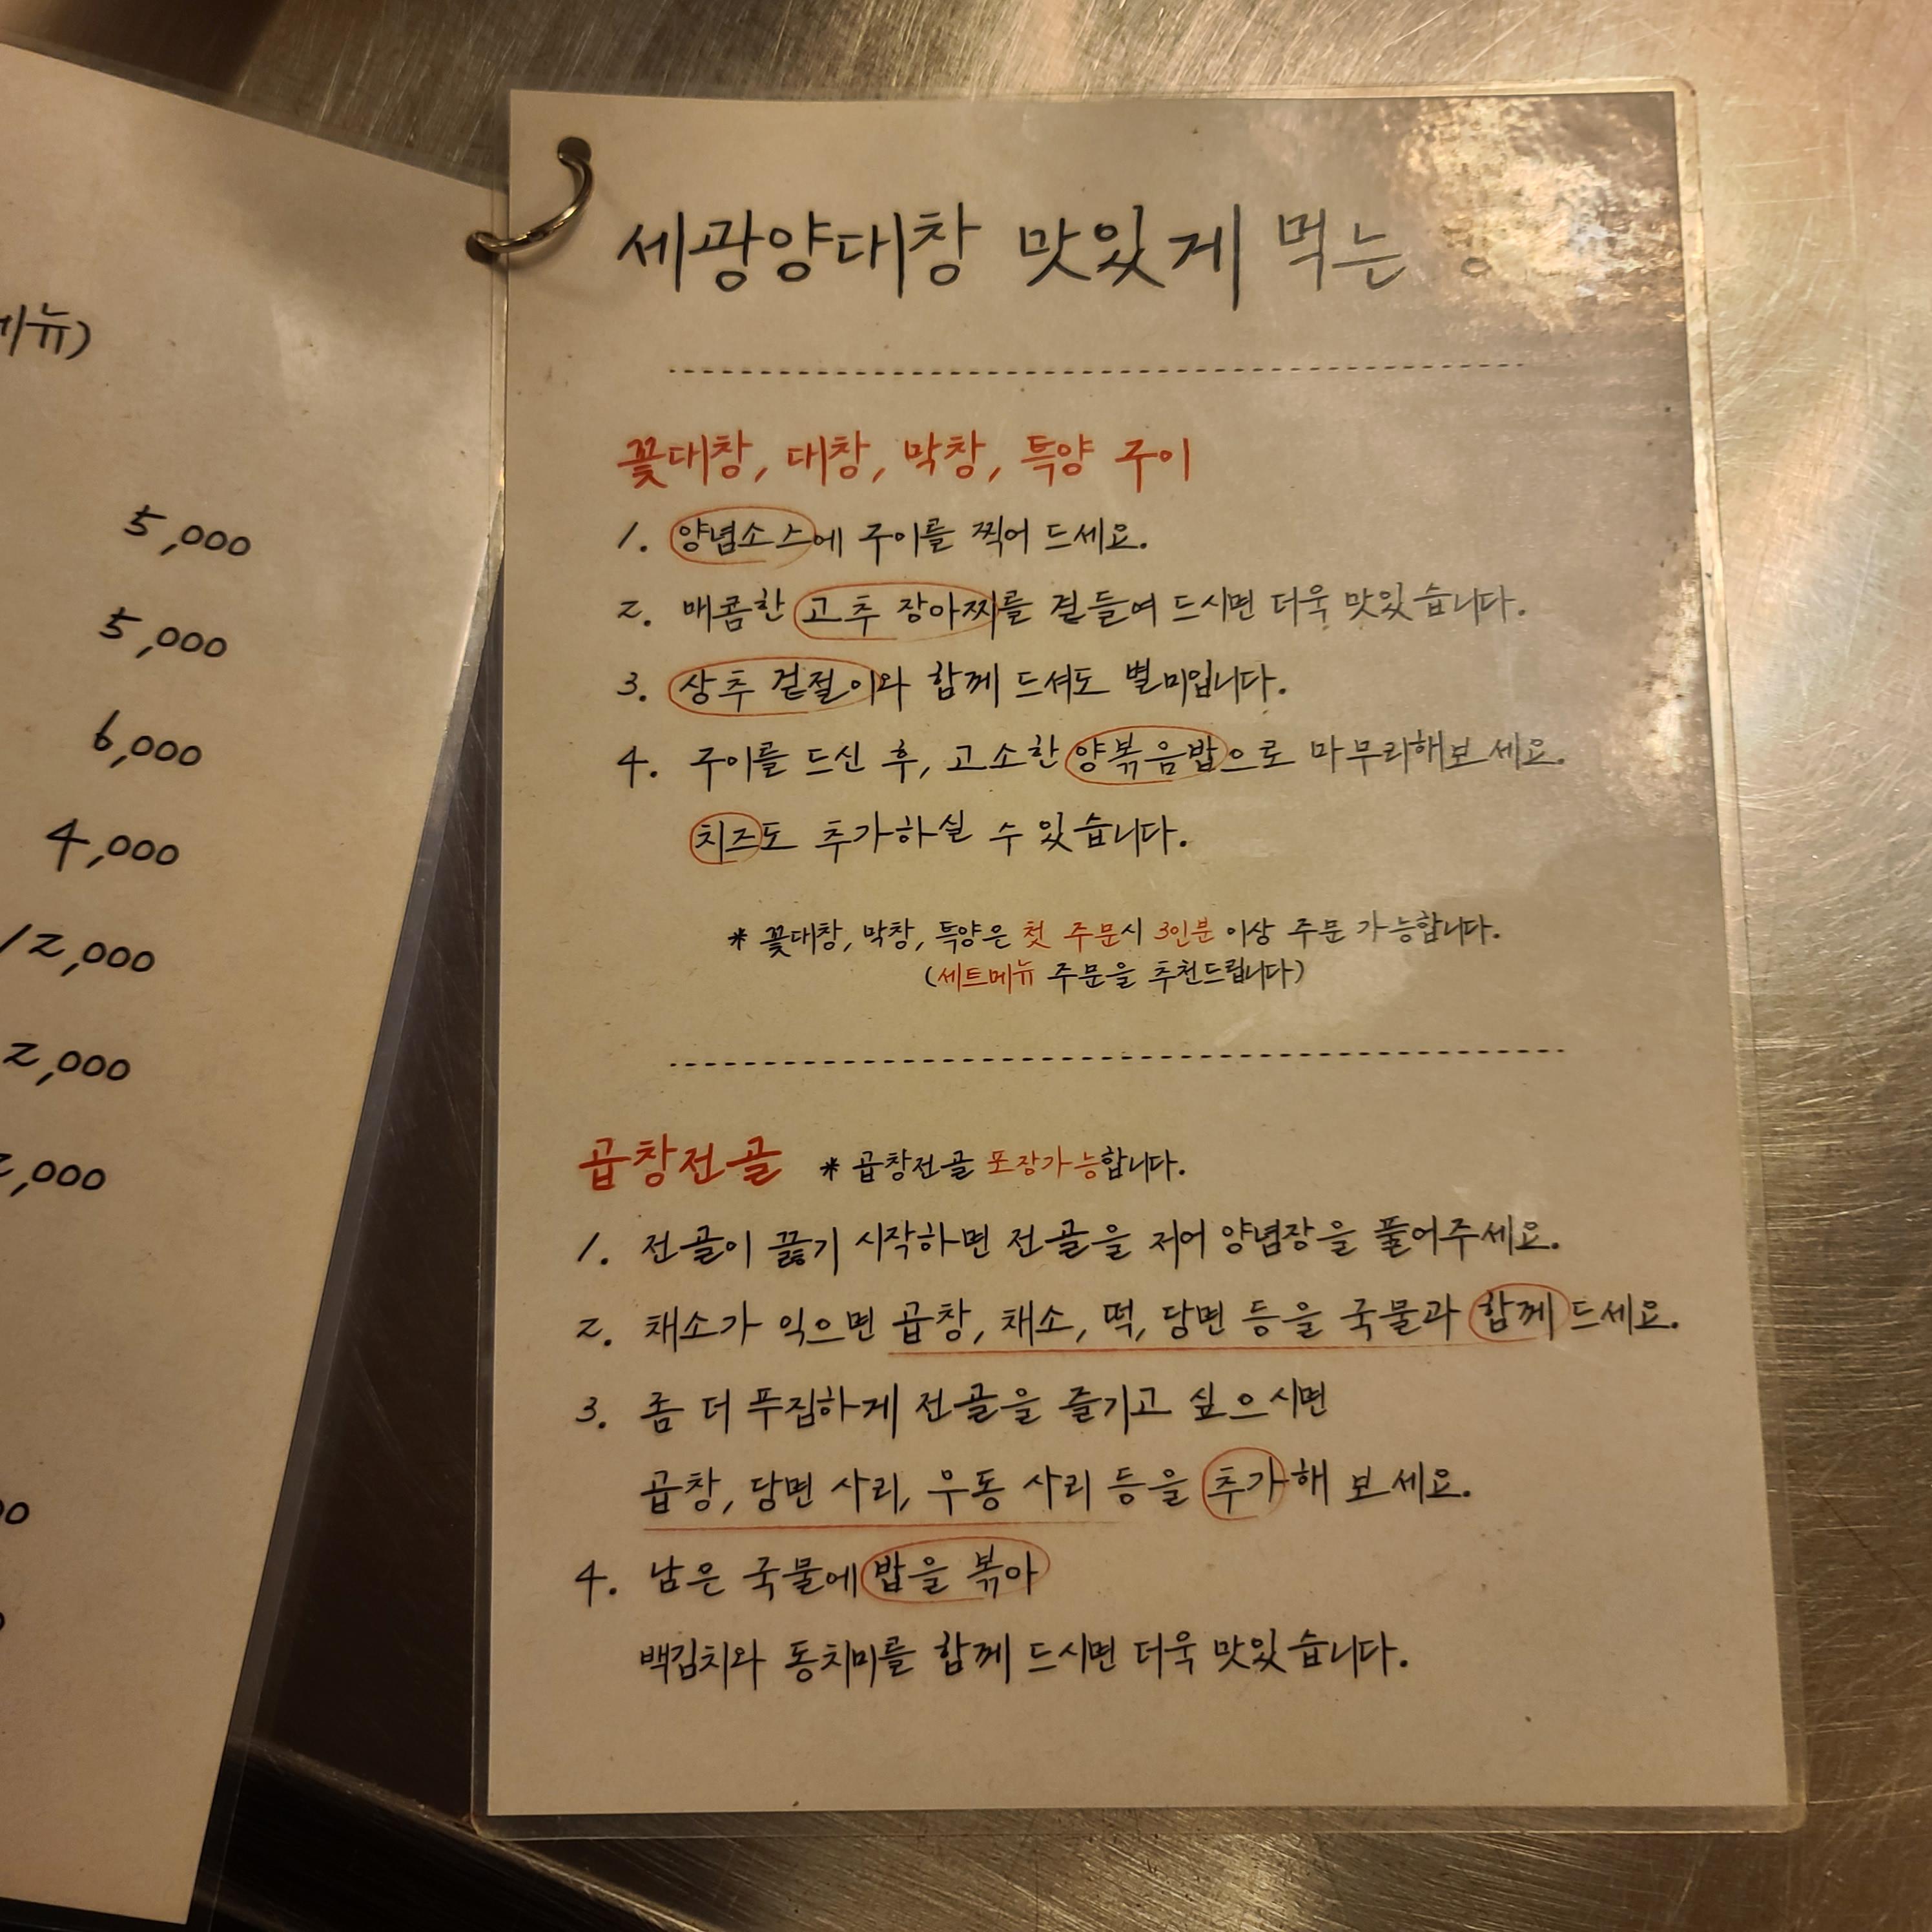 메뉴)
5,000
5,000
6,000
4,000
12,000
2,000
2,000
세광양대창 맛있게 먹는
꽃대창, 대창, 막창, 특양 구이
1. 양념소스에 구이를 찍어 드세요.
2. 매콤한 고추 장아찌를 곁들여 드시면 더욱 맛있습니다.
3. 상추 겉절이와 함께 드셔도 별미입니다.
4. 구이를 드신 후, 고소한 양볶음밥으로 마무리해보세요.
치즈도 추가하실 수 있습니다.
* 꽃대창, 막창, 특양은 첫 주문시 3인분 이상 주문 가능합니다.
(세트메뉴 주문을 추천드립니다)
곱창전골 * 곱창전골 포장가능합니다.
1. 전골이 끓기 시작하면 전골을 저어 양념장을 풀어주세요.
2. 채소가 익으면 곱창, 채소, 떡, 당면 등을 국물과 함께 드세요.
3. 좀 더 푸짐하게 전골을 즐기고 싶으시면
곱창, 당면 사리, 우동 사리 등을 추가해 보세요.
4. 남은 국물에 밥을 볶아
백김치와 동치미를 함께 드시면 더욱 맛있습니다.